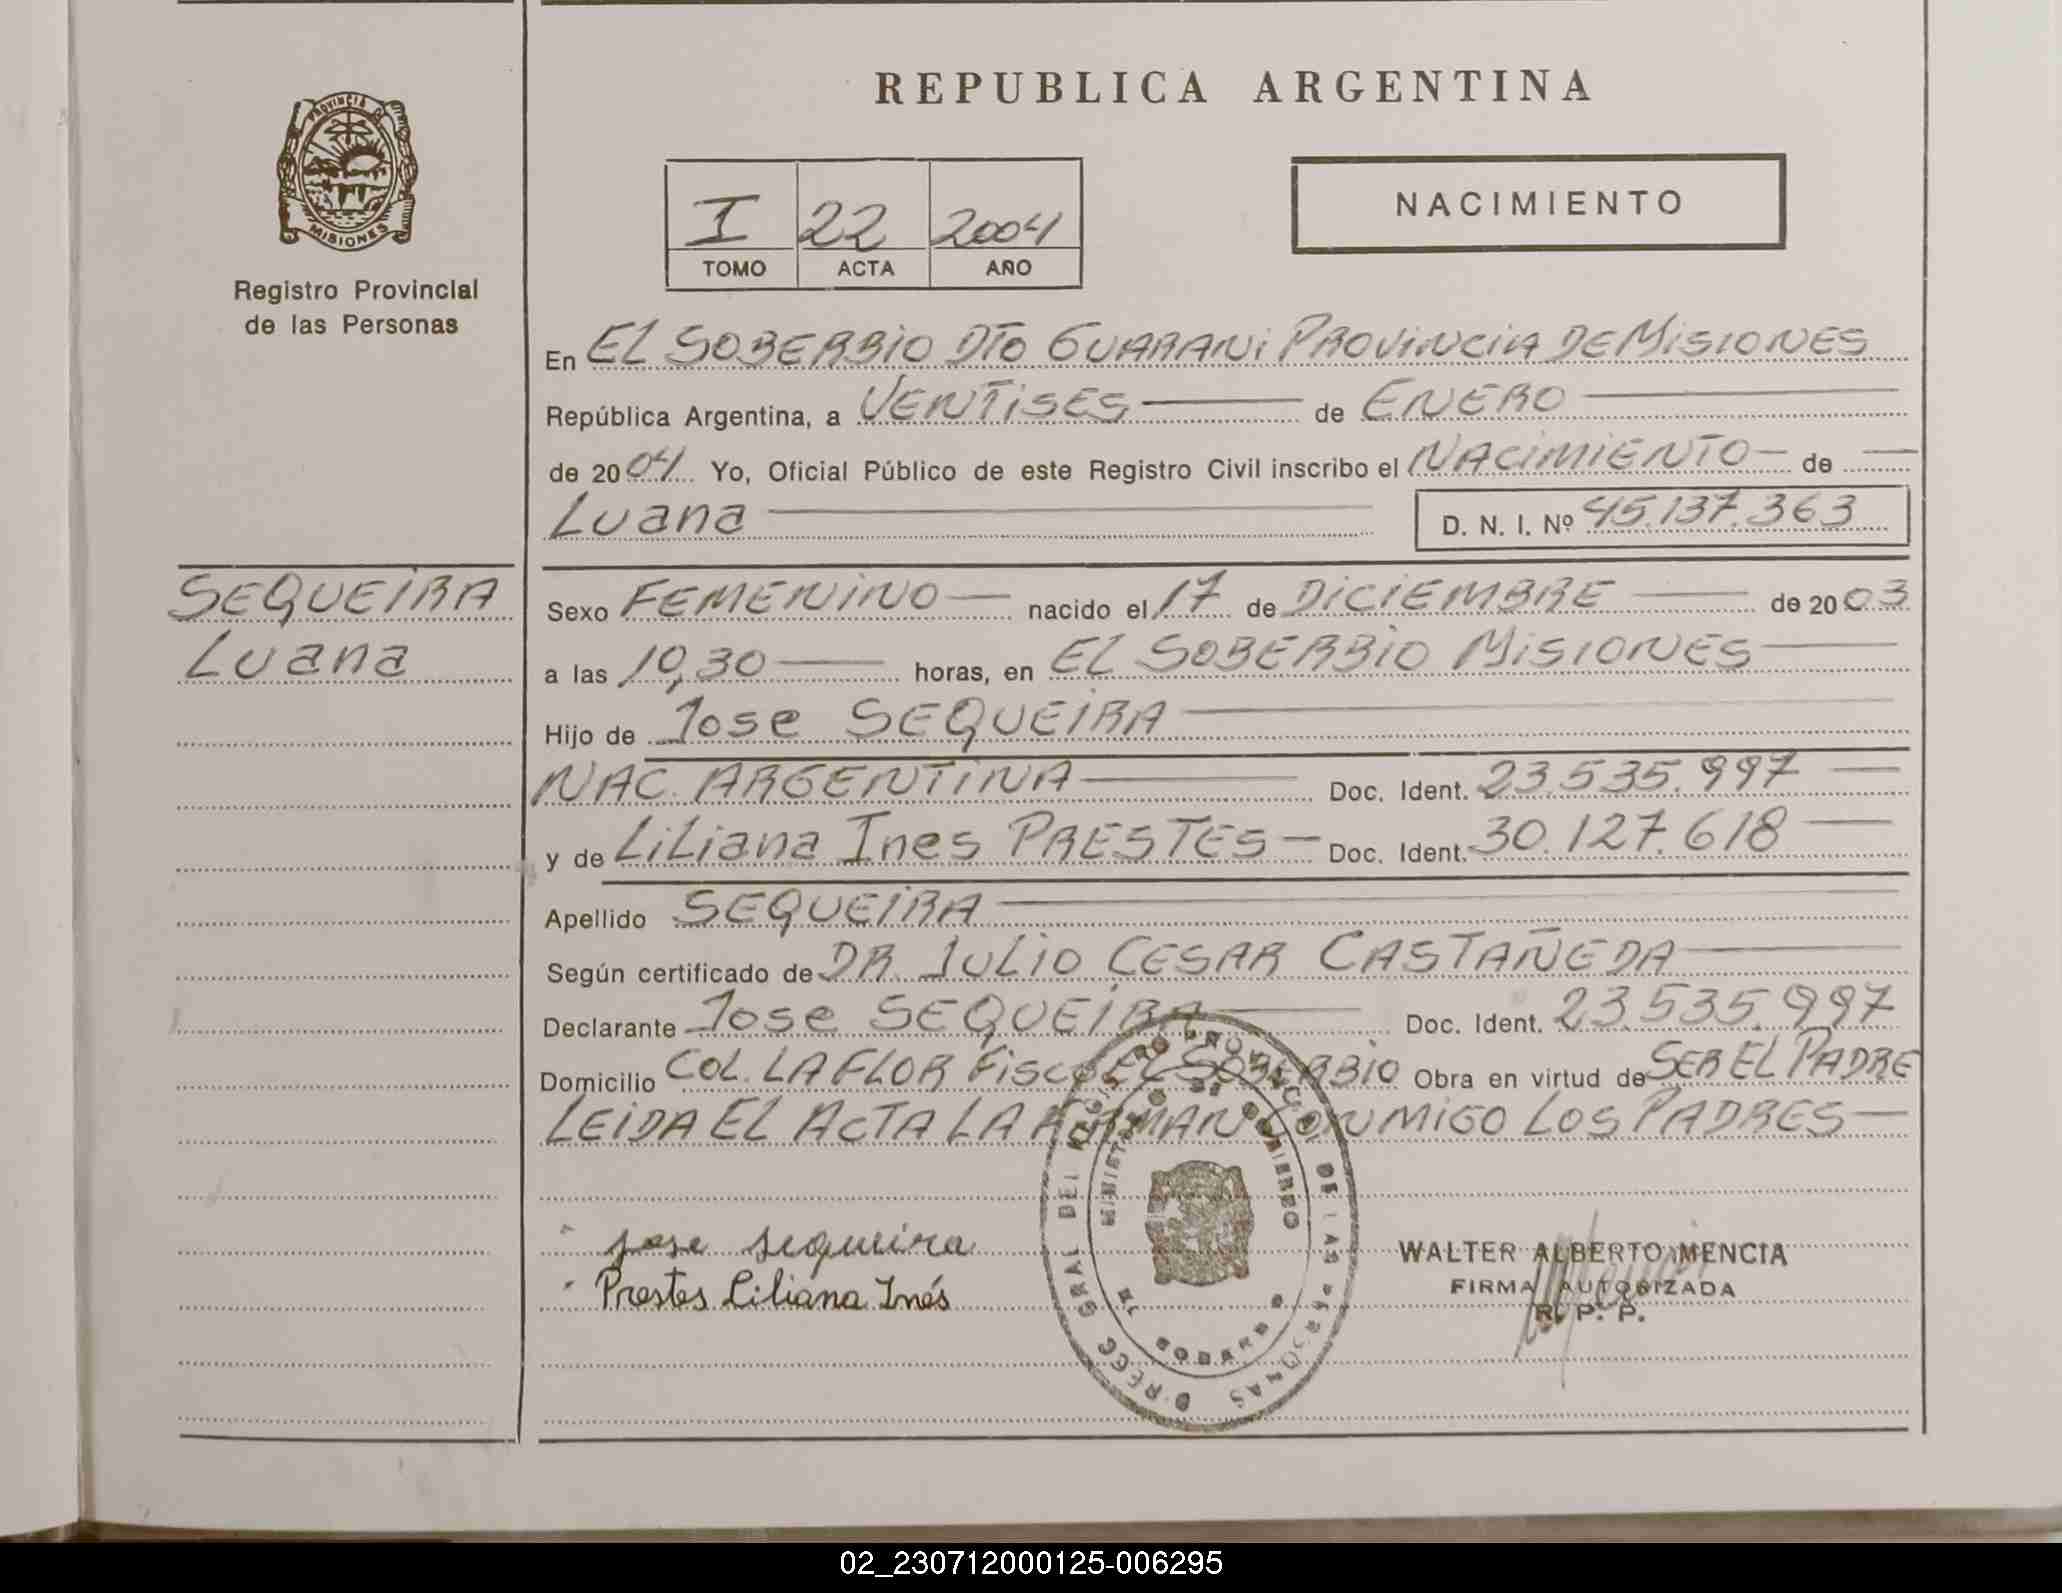 REPUBLICA ARGENTINA
PROVINCIA DE
MISIONES
Registro Provincial
de las Personas
I 22 2004
TOMO ACTA AÑO
NACIMIENTO
En EL SOBERBIO DTO GUARANI PROVINCIA DE MISIONES
República Argentina, a VENTISES de ENERO
de 2004 Yo, Oficial Público de este Registro Civil inscribo el NACIMIENTO de
Luana D. N. I. Nº 45.137.363
SEQUEIRA
Luana
Sexo FEMENINO nacido el 17 de DICIEMBRE de 2003
a las 10,30 horas, en EL SOBERBIO MISIONES
Hijo de Jose SEQUEIRA
NAC. ARGENTINA Doc. Ident. 23.535.997
y de LiLiana Ines PRESTES Doc. Ident. 30.127.618
Apellido SEQUEIRA
Según certificado de DR. JULIO CESAR CASTAÑEDA
Declarante Jose SEQUEIRA Doc. Ident. 23.535.997
Domicilio COL. LA FLOR Fisc EL SOBERBIO Obra en virtud de SER EL PADRE
LEIDA EL ACTA LA FIRMAN CONMIGO LOS PADRES
jose sequeira
Prestes Liliana Inés
DIRECC GRAL DEL REGISTRO PROVINCIAL DE LAS PERSONAS
MINISTERIO DE GOBIERNO
WALTER ALBERTO MENCIA
FIRMA AUTORIZADA
R. P. P.
02_230712000125-006295